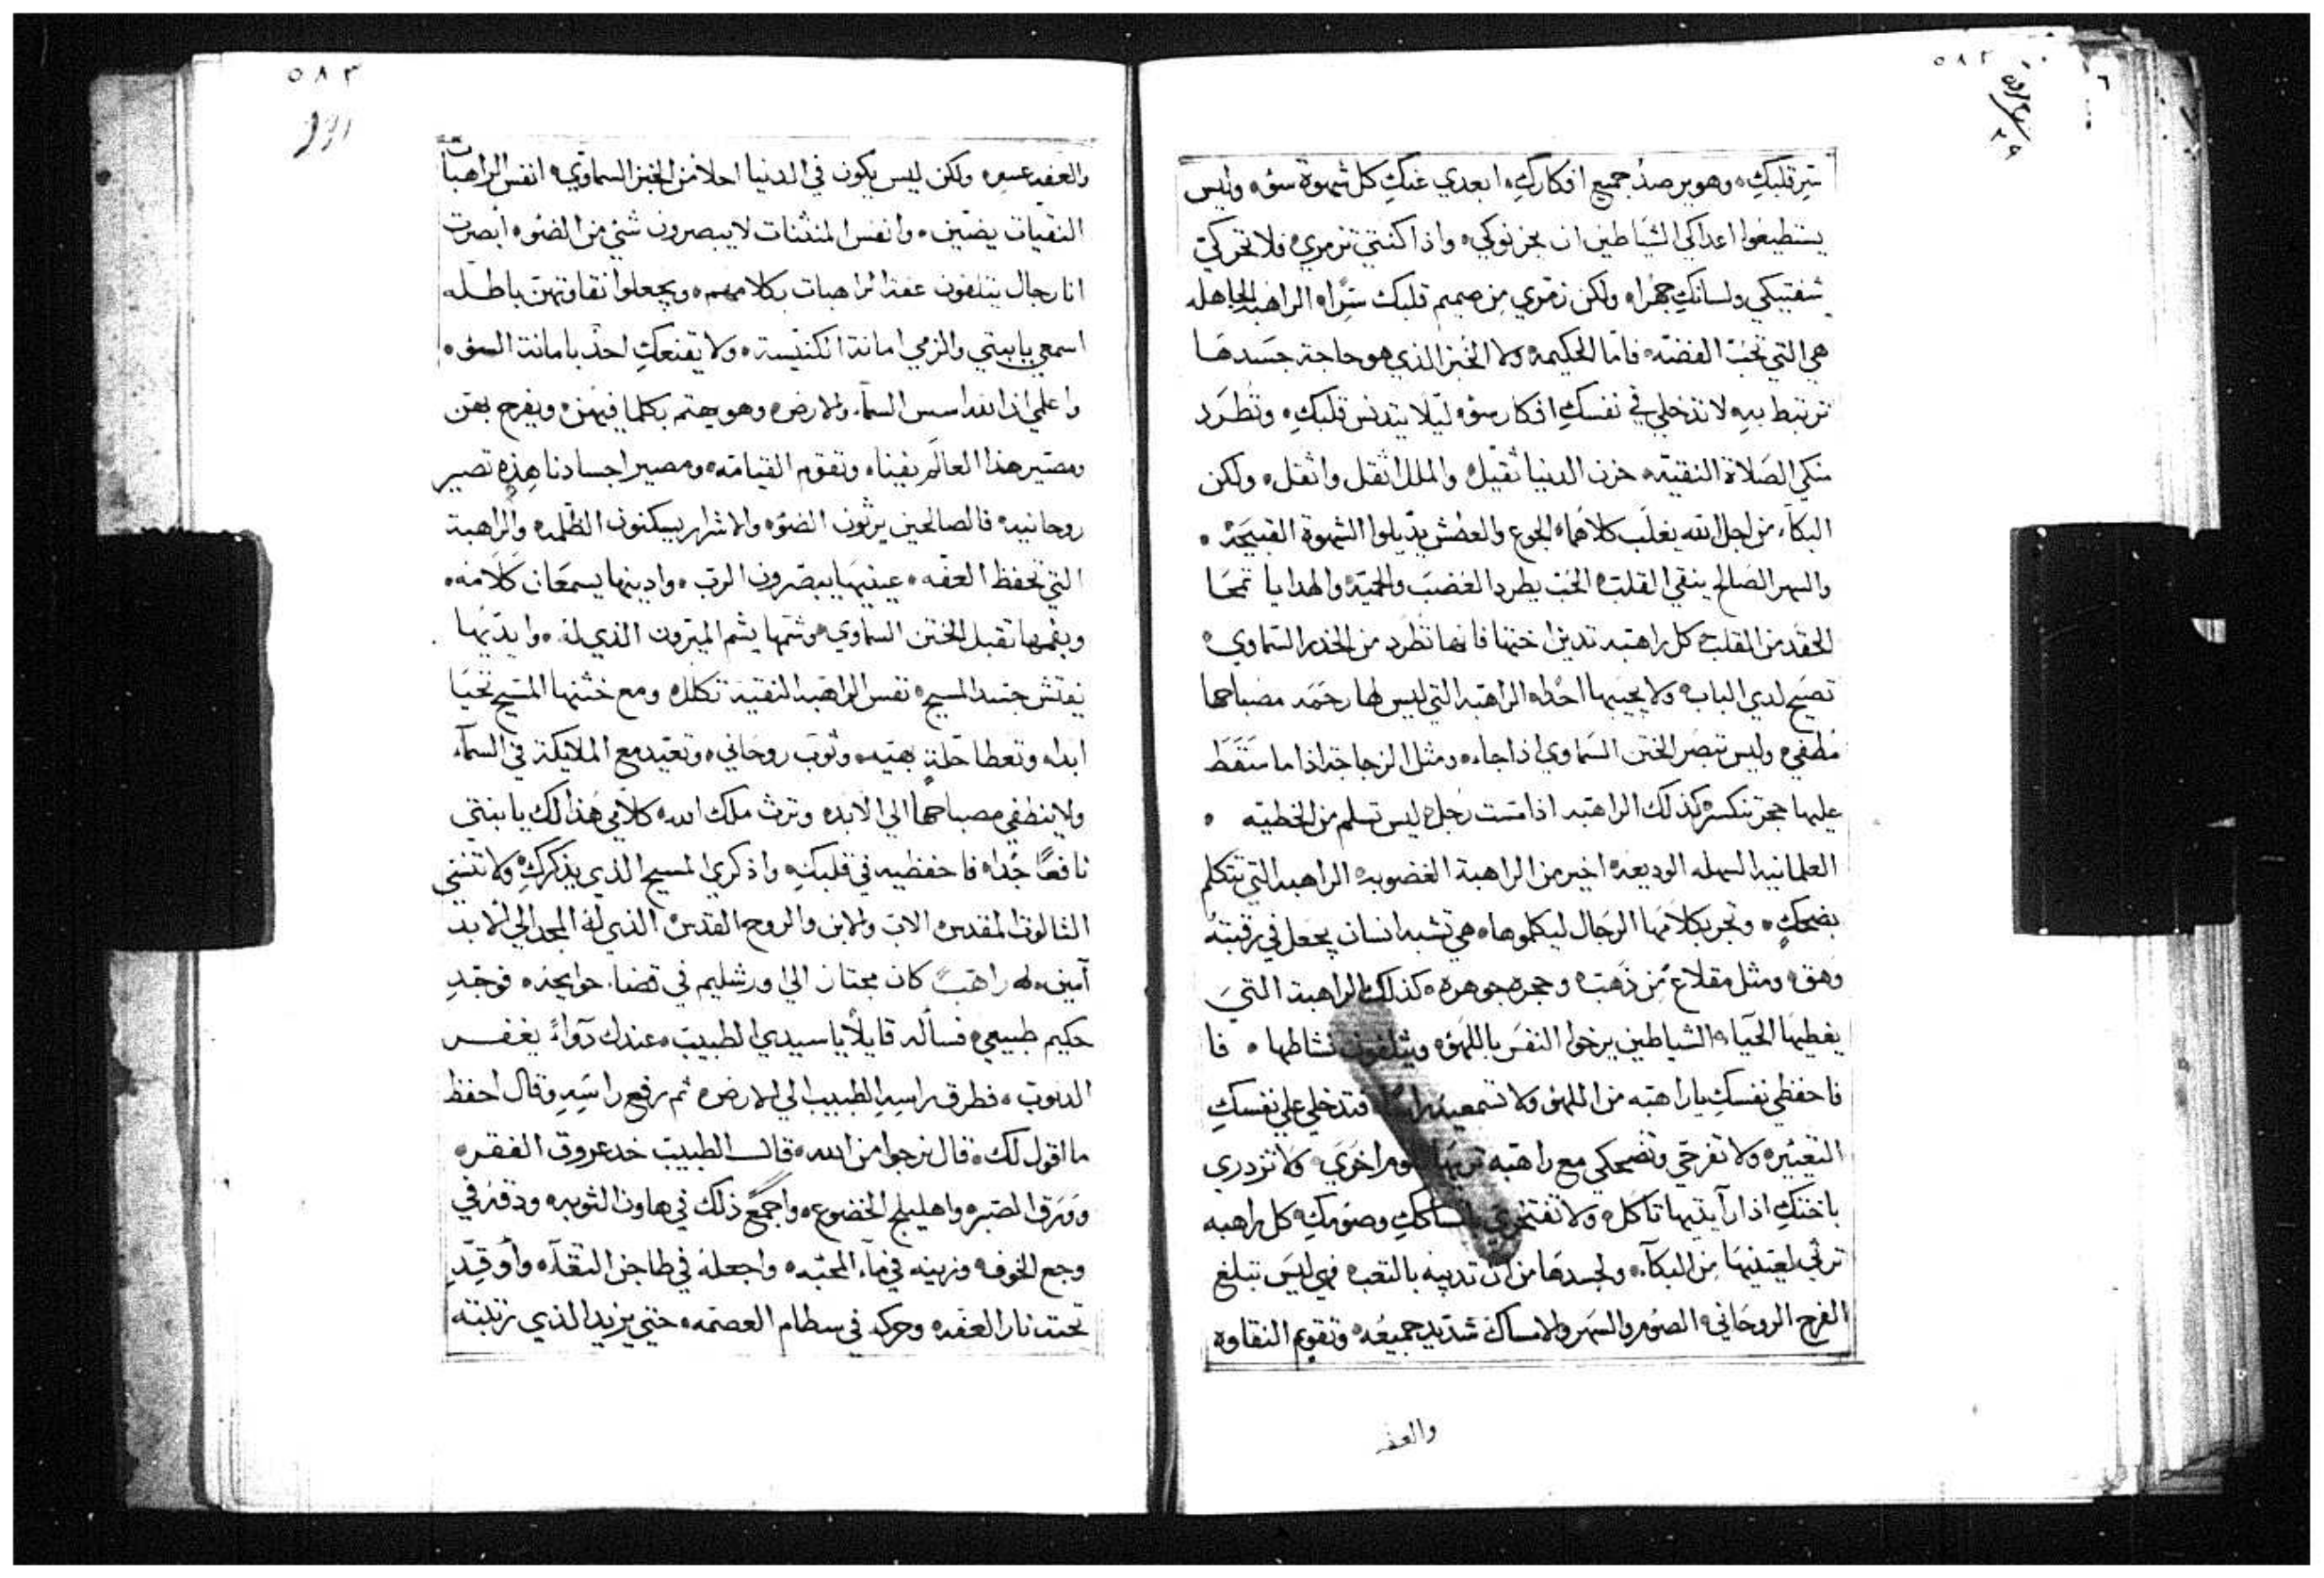 ٥٨٢
سِرِ قلبكِ ٥ وهو يرصدُ جميع افكاركِ ٥ ابعدي عنكِ كل شهوة سوٌ ٥ وليس
يستطيعوا اعداكي الشياطين ان يحزنوكي ٥ واذا كنتي تزمري ٥ فلا تحركي
شفتيكي ولسانكِ جهرًا ٥ ولكن زمري من صميم قلبك سِرًا ٥ الراهبه الجاهله
هي التي تحبُ الفضّه ٥ فاما الحكيمه ولا الخبز الذي هو حاجة جسَدهَا
ترتبط بهِ لا تدخلي في نفسكِ افكار سوٌ ليَلا يتدنس قلبكِ ٥ وتطرَد
منكي الصَلاة النقيّه ٥ حزن الدنيا ثقيل ٥ والملل اثقل واثقل ٥ ولكن
البكاَء من اجل الله يغلَب كلاهُما ٥ الجوع والعطش يدّبلوا الشهوة القبيَحَه ٥
والسهر الصَالح ينقي القلب ٥ الحُب يطرد الغضبَ والحميّه والهدايا تمحَا
الحقد من القلب ٥ كل راهبَه تدين اختها فانها تُطرد من الخدر السَماوي ٥
تصيَح لدي الباب ٥ ولا يجيبها احَد ٥ الراهبَه التي ليس لها رحَمَه مصباحها
مُطفي ٥ وليس تبصَر الختن السَماوي اذا جاء ٥ ومثل الزجاجة اذا ما سَقَطَ
عليها حجر تنكسر ٥ كذلك الراهبَه اذا مسَت رجل ٥ ليس تسلم من الخطيّه ٥
العلمانيه السهله الوديعه ٥ اخير من الراهبة الغضوبه ٥ الراهبه التي تتكلم
بضحكٍ ٥ وتجر بكلامَها الرجَال ليكلموها ٥ هي تشبه انسان يجَعل في رقبتهُ
وَهق ٥ ومثل مقلاع مُن ذَهَب ٥ وحجره جوهره ٥ كذلك الراهبة التيَ
يغطيهَا الحَيا ٥ الشياطين يرخوا النفسَ باللهوٌ ٥ ويتلفون نشاطها ٥ فا
فاحفظي نفسكِ يا راهبَه من اللهو ٥ ولا تسمعيه فتدخلي علي نفسكِ
التعيَير ٥ ولا تفرحَي وتضحكي مع راهبَه تريهَا اخرَي ٥ ولا تزدري
باختكِ اذا رآيتيها تاكَل ٥ ولا تفتخري بامساككِ وصَومكِ ٥ كل راهبه
ترثي لعَينيهَا مِن البكاَء ٥ ولجسدهَا من ان تدبيه بالتعب ٥ فهي ليسَ تبلغ
الفرح الروحَاني ٥ الصَوم والسَهر والامساك شدَيد جميعُه ٥ وتقويم النقاوه
والعفه
٥٨٣
والعفّه عسِره ٥ ولكن ليس يكون في الدنيا احلا من الخبز السماوي ٥ انفس الراهبات
النقيّات يضيّن ٥ وانفس المنتنات لا يبصرون شيْ من الضوْ ٥ ابصَرت
انا رجال يتلفون عفة الراهبات بكلامهم ٥ ويجعلوا نقاوتهن باطـله
اسمعي يا بنتي والزمي امانة الكنيسة ٥ ولا يقنعكِ احدٌ بامانة السوْ ٥
واعلمي ان الله اسس السماَء والارض ٥ وهو يهتم بكلما فيهن ٥ ويفرح بهن
ومصَير هذا العالَم يفينا ٥ وتقوم القيامَه ٥ ومصير اجسادنا هذِه تصير
روحانيه ٥ فالصالحين يرثون الضوْ ٥ والاشرار يسكنون الظلمه ٥ والراهبة
التي تحفظ العفّه ٥ عينيهَا يبصَرون الرب ٥ وادنيها يسمعَان كلامَه ٥
وبفمها تقبل الختن السماوي ٥ وشمها يشم الميَرون الذي له ٥ وايديَها
تفتش جسَد المسيح ٥ نفس الراهبَه النقيَة تكلل ٥ ومع ختنها المسَيح تحيَا
ابدا ٥ وتعطا حلة بهيّه ٥ وثوبَ روحَاني ٥ وتعيّد مع الملايكة في السماَء
ولا ينطفي مصباحها الي الابد ٥ وترث ملك الله ٥ كلامي هَذا لك يا بنتي
نافعًا جُدا ٥ فاحفظيه في قلبكِ ٥ واذكري المسيح الذي يذكركِ ٥ ولا تنسَي
الثالوث المقدس ٥ الاب والابن والروح القدس ٥ الذي لهُ المجد الي الابد
آمين ٥ راهبً كان مجتاز الي اورشليم في قضاء حوايجه ٥ فوجَدِ
حكيم طبيعي ٥ فسأله قايلًا يا سيدي الطبيب ٥ عندك دَواءً يغفـر
الدنوب ٥ فطرق راسِه الطبيب الي الارض ٥ ثم رفع راسَهِ وقال احفظ
ما اقول لك ٥ قال نرجوا من الله ٥ قالـ الطبيب خد عروق الفقر ٥
وَورق الصَبر ٥ واهليلج الخضوع ٥ واجمَع ذلك في هاون التوبه ٥ ودقهُ في
وجع الخوف ٥ وزينه في ماَء المحبّه ٥ واجعلهُ في طاجن التقَآ ٥ وأوقَدِ
تحته نار العفّه ٥ وحركه في سطام العصمَه ٥ حتي يزيد الذي